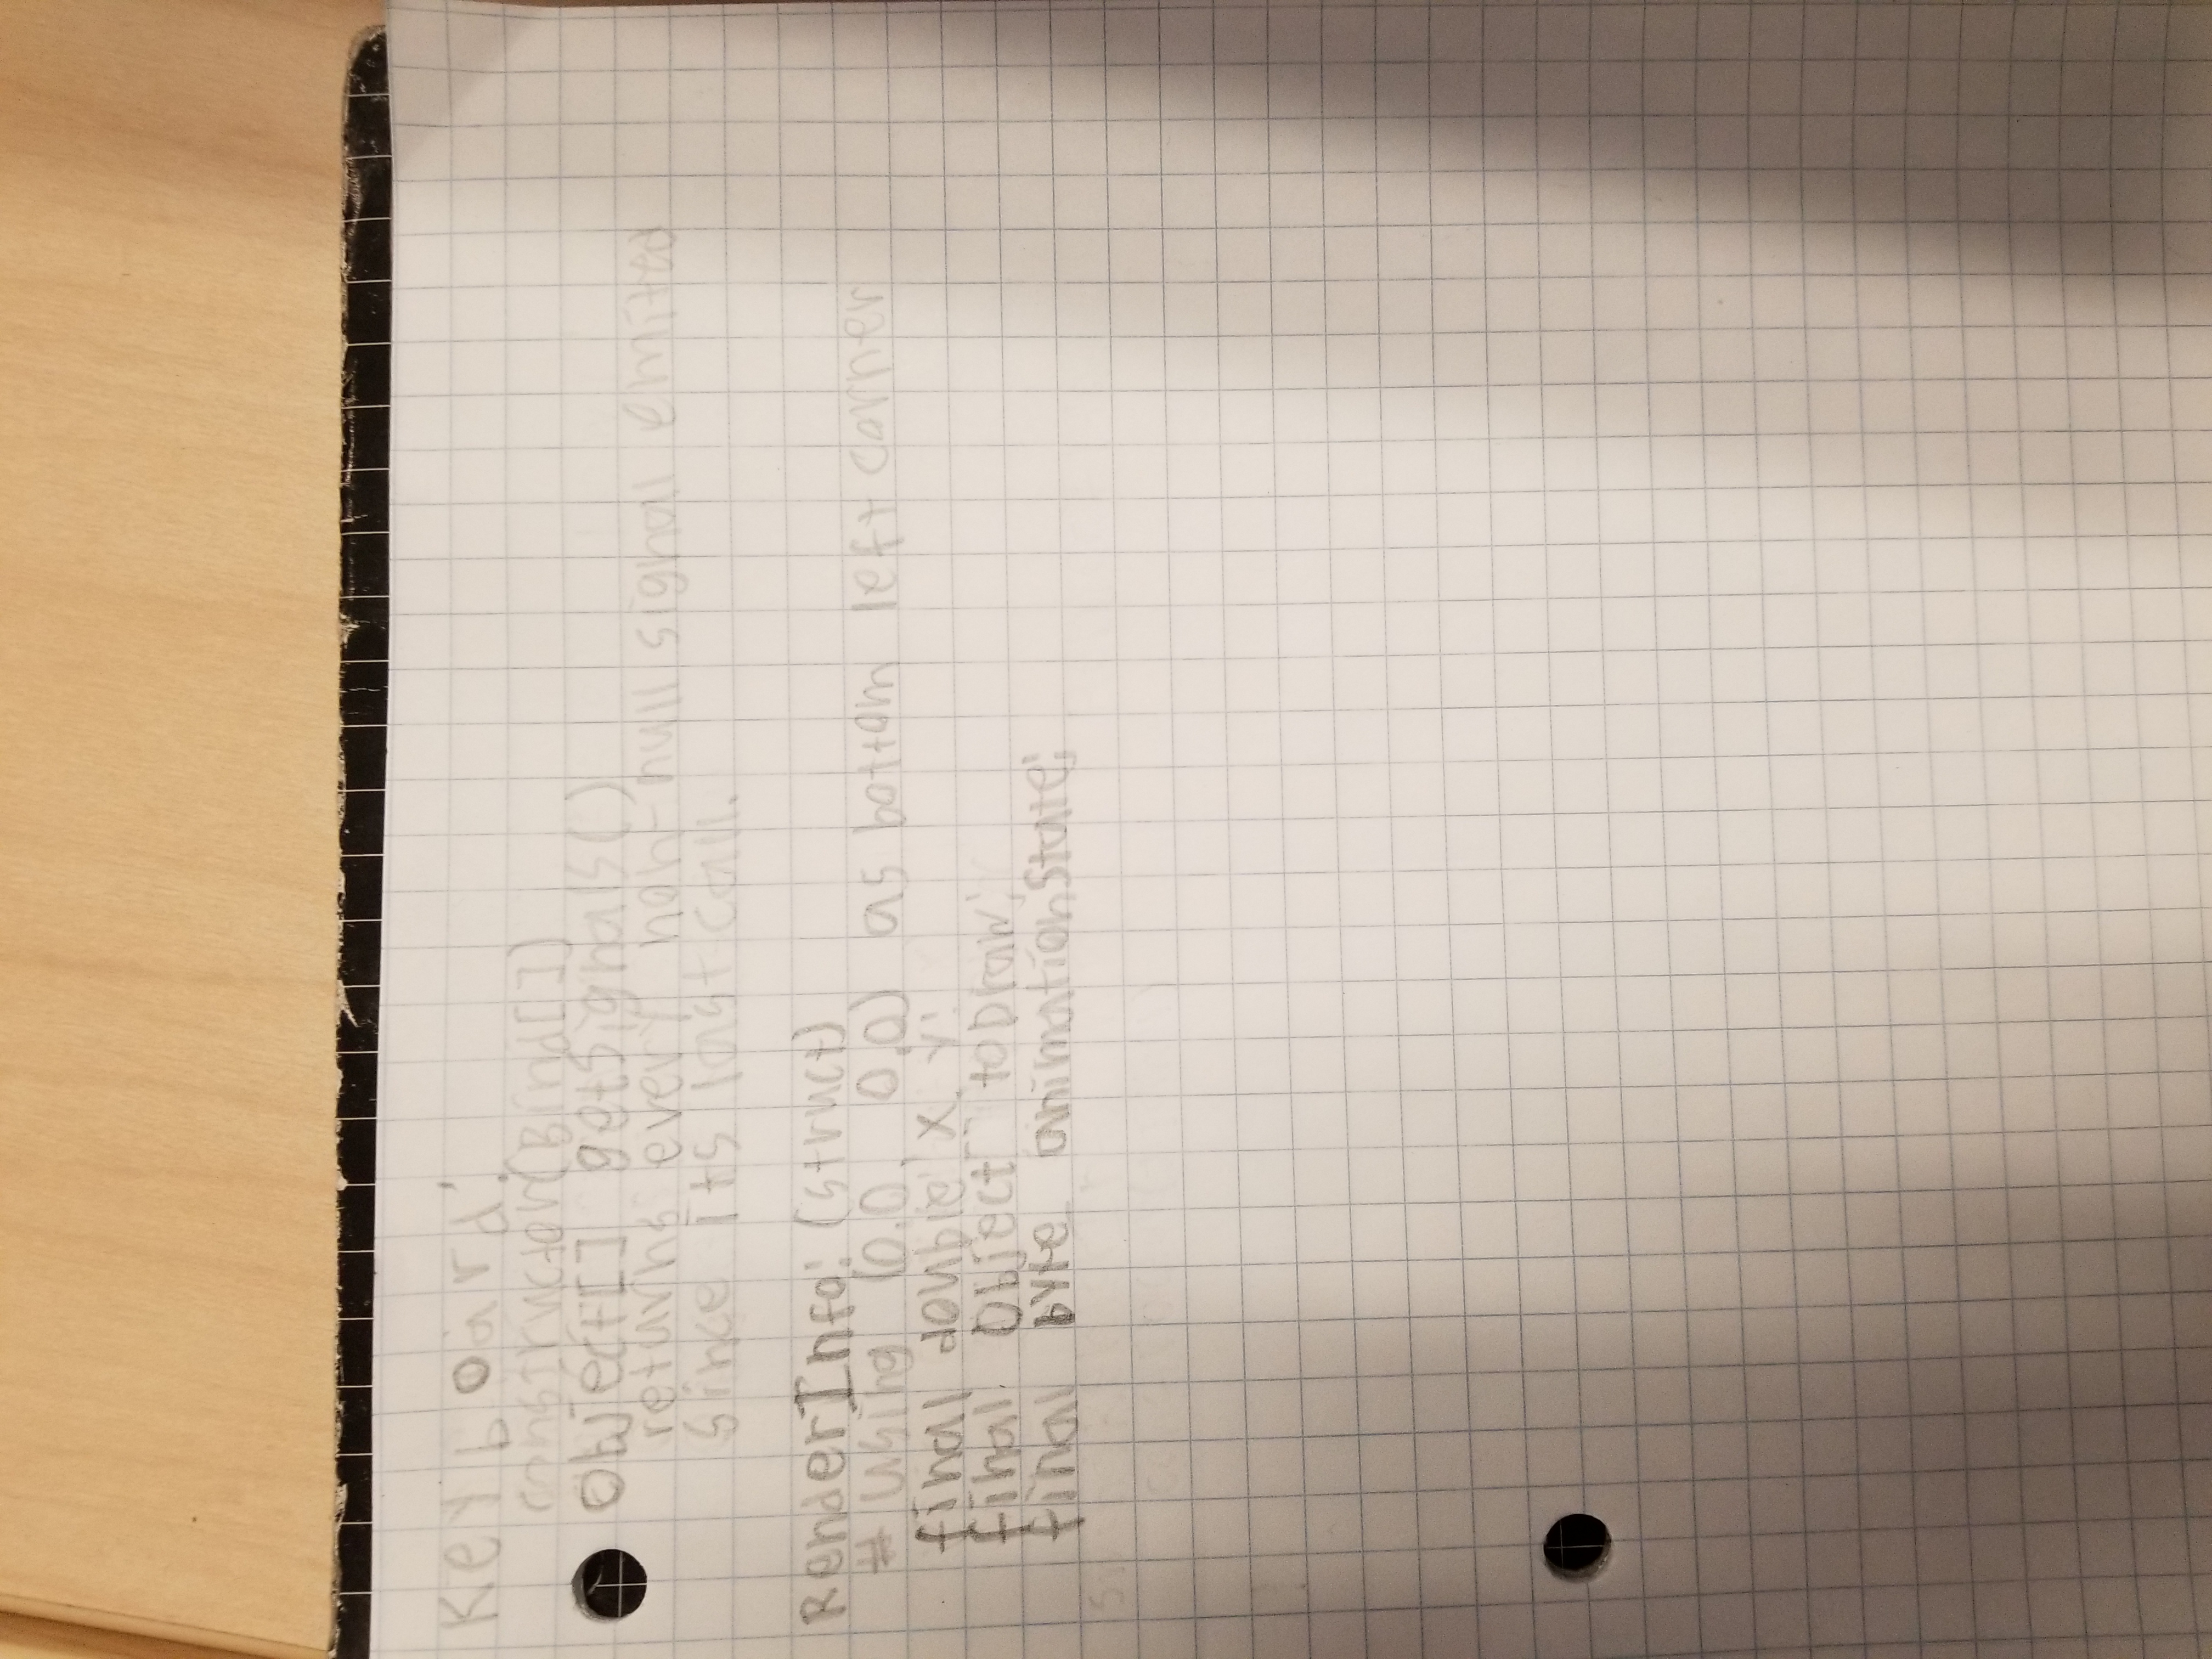 Keyboard:
constructor(Bind[])
Object[] getSignals()
returns every non-null signal emited
since its last call.
RenderInfo: (struct)
# Using (0.0, 0.0) as bottom left corner
final double x, y;
final Object toDraw;
final byte animationState;